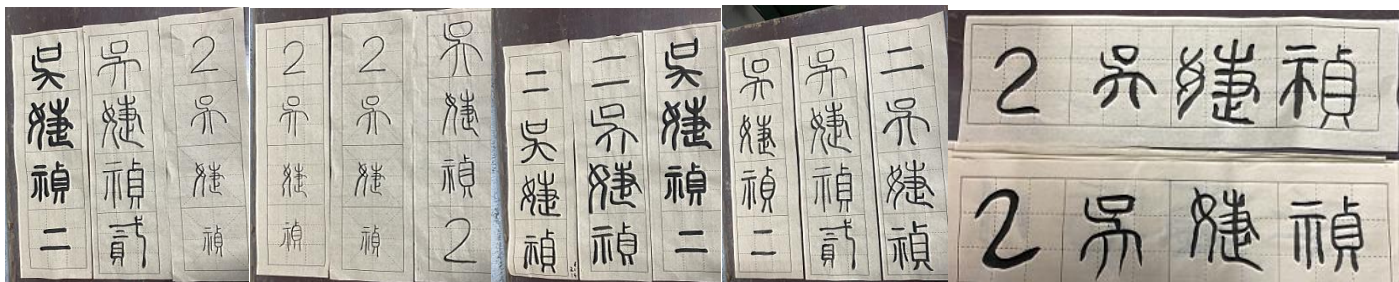 吳婕禎二
吳婕禎貳
2吳婕禎
2吳婕禎
2吳婕禎
吳婕禎2
二吳婕禎
二吳婕禎
吳婕禎二
吳婕禎二
吳婕禎貳
二吳婕禎
2吳婕禎
2吳婕禎